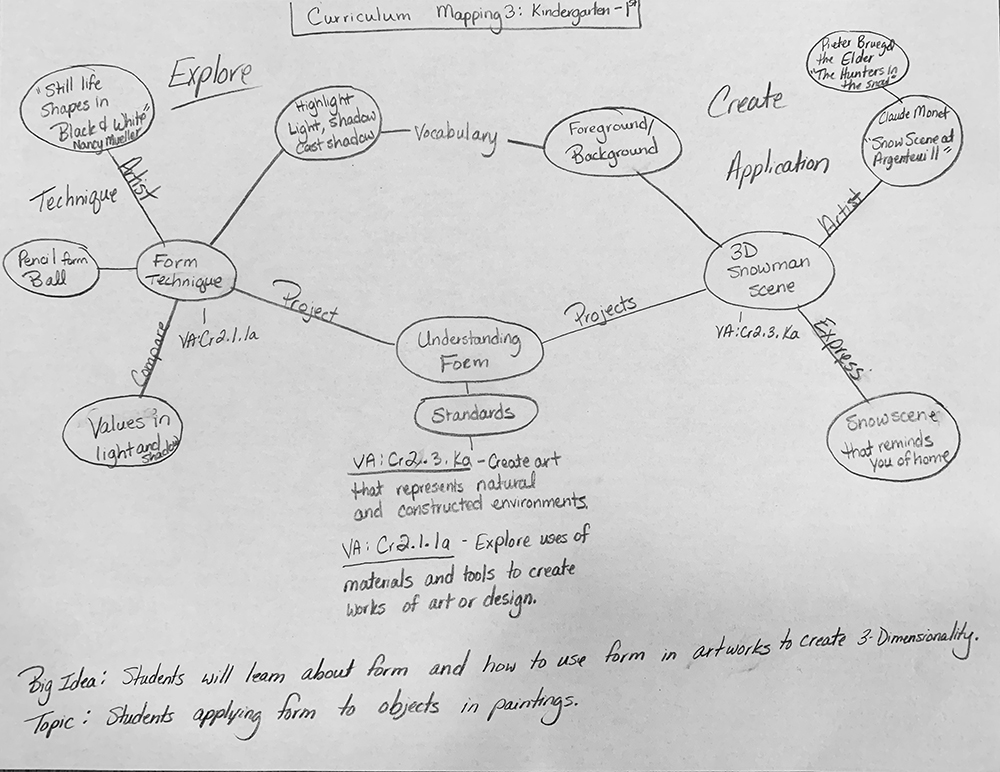 Curriculum Mapping 3: Kindergarten - 1st
Explore
"Still life
Shapes in
Black & White"
Nancy Mueller
Artist
Technique
Pencil form
Ball
Form
Technique
VA:Cr2.1.1a
Compare
Values in
light and
shadow
Highlight
Light, Shadow
Cast shadow
Vocabulary
Foreground/
Background
Project
Understanding
Form
Projects
Standards
VA: Cr2.3.Ka - Create art
that represents natural
and constructed environments.
VA: Cr2.1.1a - Explore uses of
materials and tools to create
works of art or design.
Create
Application
Pieter Bruegel
the Elder
"The Hunters in
the snow"
Claude Monet
"Snow Scene at
Argenteuil"
Artist
3D
Snowman
scene
VA:Cr2.3.Ka
Express
Snowscene
that reminds
you of home
Big Idea: Students will learn about form and how to use form in artworks to create 3-Dimensionality.
Topic: Students applying form to objects in paintings.